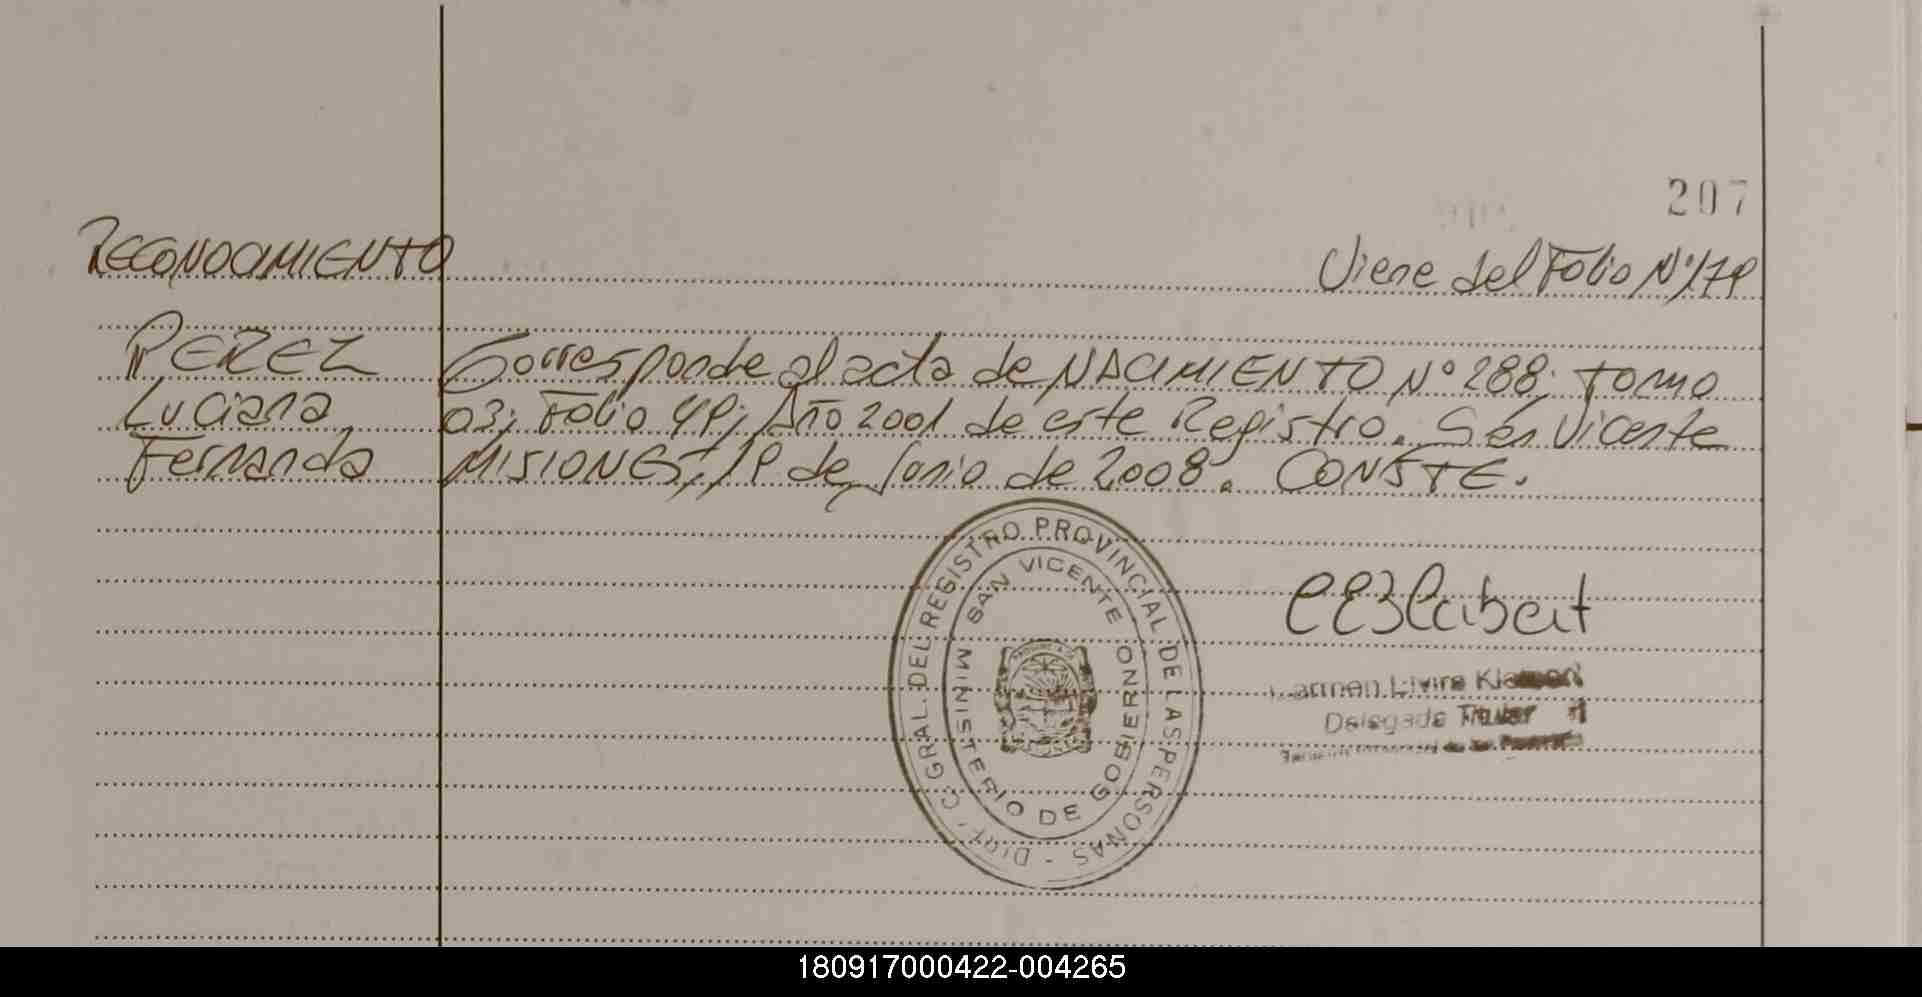 207
RECONOCIMIENTO
Viene del Folio Nº179
PEREZ Corresponde al acta de NACIMIENTO Nº288; tomo
Luciana 03; Folio 49; Año 2001 de este Registro. San Vicente
Fernanda MISIONES, 19 de Junio de 2008. CONSTE.
DIREC. GRAL. DEL REGISTRO PROVINCIAL DE LAS PERSONAS -
SAN VICENTE
MINISTERIO DE GOBIERNO
Carmen Elvira
Delegada Titular
180917000422-004265